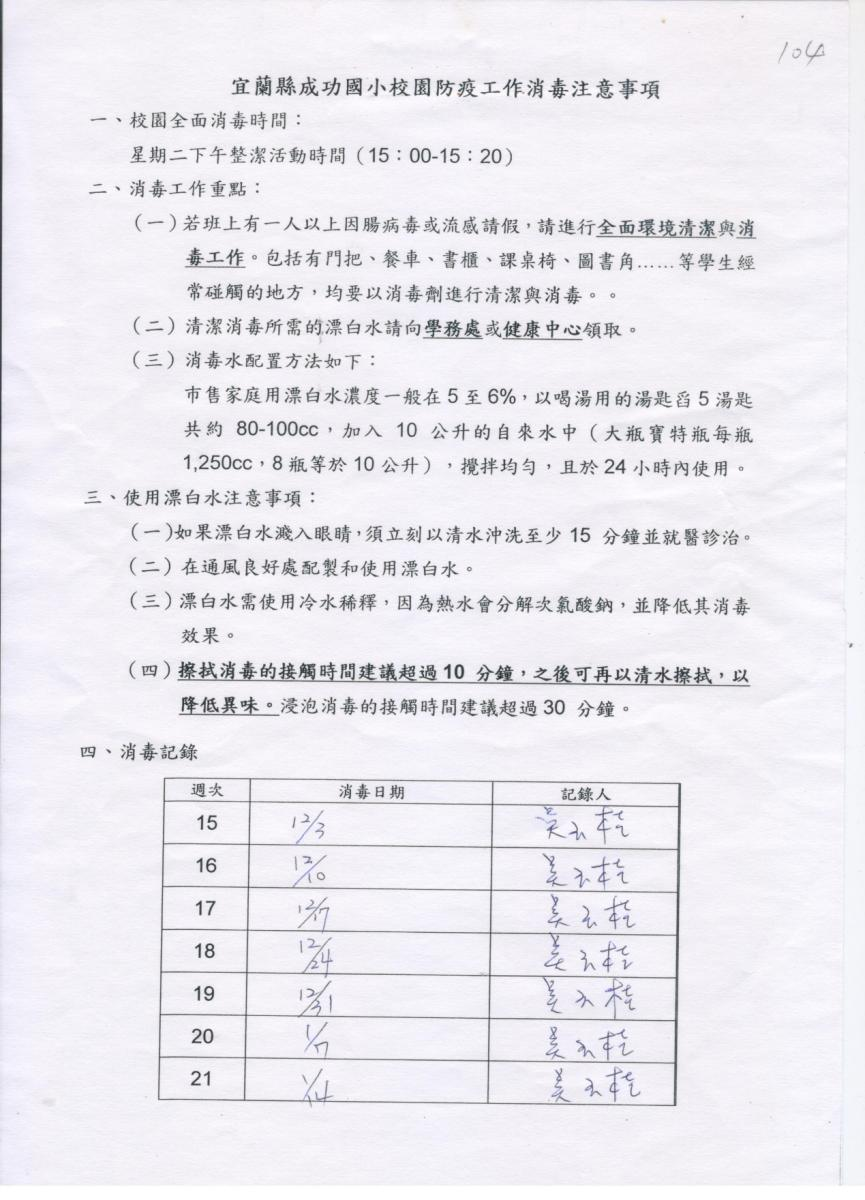 104
宜蘭縣成功國小校園防疫工作消毒注意事項
一、校園全面消毒時間：
星期二下午整潔活動時間（15：00-15：20）
二、消毒工作重點：
（一）若班上有一人以上因腸病毒或流感請假，請進行全面環境清潔與消
毒工作。包括有門把、餐車、書櫃、課桌椅、圖書角……等學生經
常碰觸的地方，均要以消毒劑進行清潔與消毒。。
（二）清潔消毒所需的漂白水請向學務處或健康中心領取。
（三）消毒水配置方法如下：
市售家庭用漂白水濃度一般在 5 至 6%，以喝湯用的湯匙舀 5 湯匙
共約 80-100cc，加入 10 公升的自來水中（大瓶寶特瓶每瓶
1,250cc，8 瓶等於 10 公升），攪拌均勻，且於 24 小時內使用。
三、使用漂白水注意事項：
（一）如果漂白水濺入眼睛，須立刻以清水沖洗至少 15 分鐘並就醫診治。
（二）在通風良好處配製和使用漂白水。
（三）漂白水需使用冷水稀釋，因為熱水會分解次氯酸鈉，並降低其消毒
效果。
（四）擦拭消毒的接觸時間建議超過 10 分鐘，之後可再以清水擦拭，以
降低異味。浸泡消毒的接觸時間建議超過 30 分鐘。
四、消毒記錄
週次 消毒日期 記錄人
15 12/3 吳玉桂
16 12/10 吳玉桂
17 12/17 吳玉桂
18 12/24 吳玉桂
19 12/31 吳玉桂
20 1/7 吳玉桂
21 1/14 吳玉桂